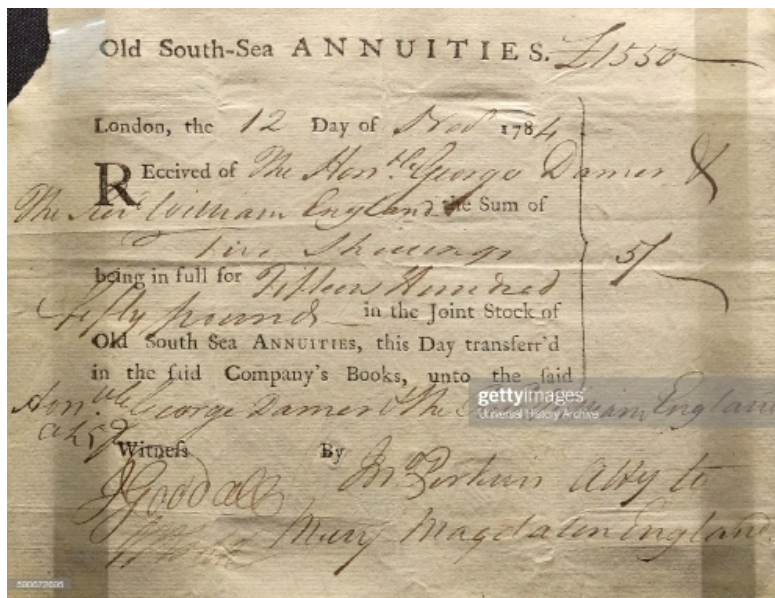 Old South-Sea ANNUITIES. £1550
London, the 12 Day of Nov.r 1784
REceived of The Hon.ble George Damer &
The Rev.d William England the Sum of
Five Shillings 5/
being in full for Fifteen Hundred
fifty pounds in the Joint Stock of
Old South Sea ANNUITIES, this Day transferr'd
in the said Company's Books, unto the said
Hon.ble George Damer & the William England
gettyimages
Universal History Archive
Witness By Jn.o Perkins Atty to
J Goodall
Mary Magdalen England
590672695